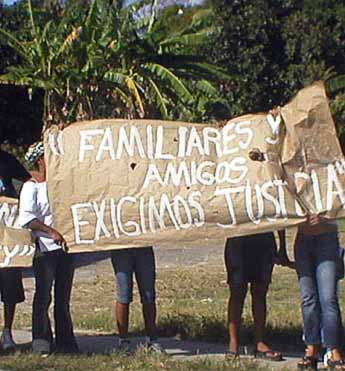 "FAMILIARES y
AMIGOS
EXIGIMOS JUSTICIA"